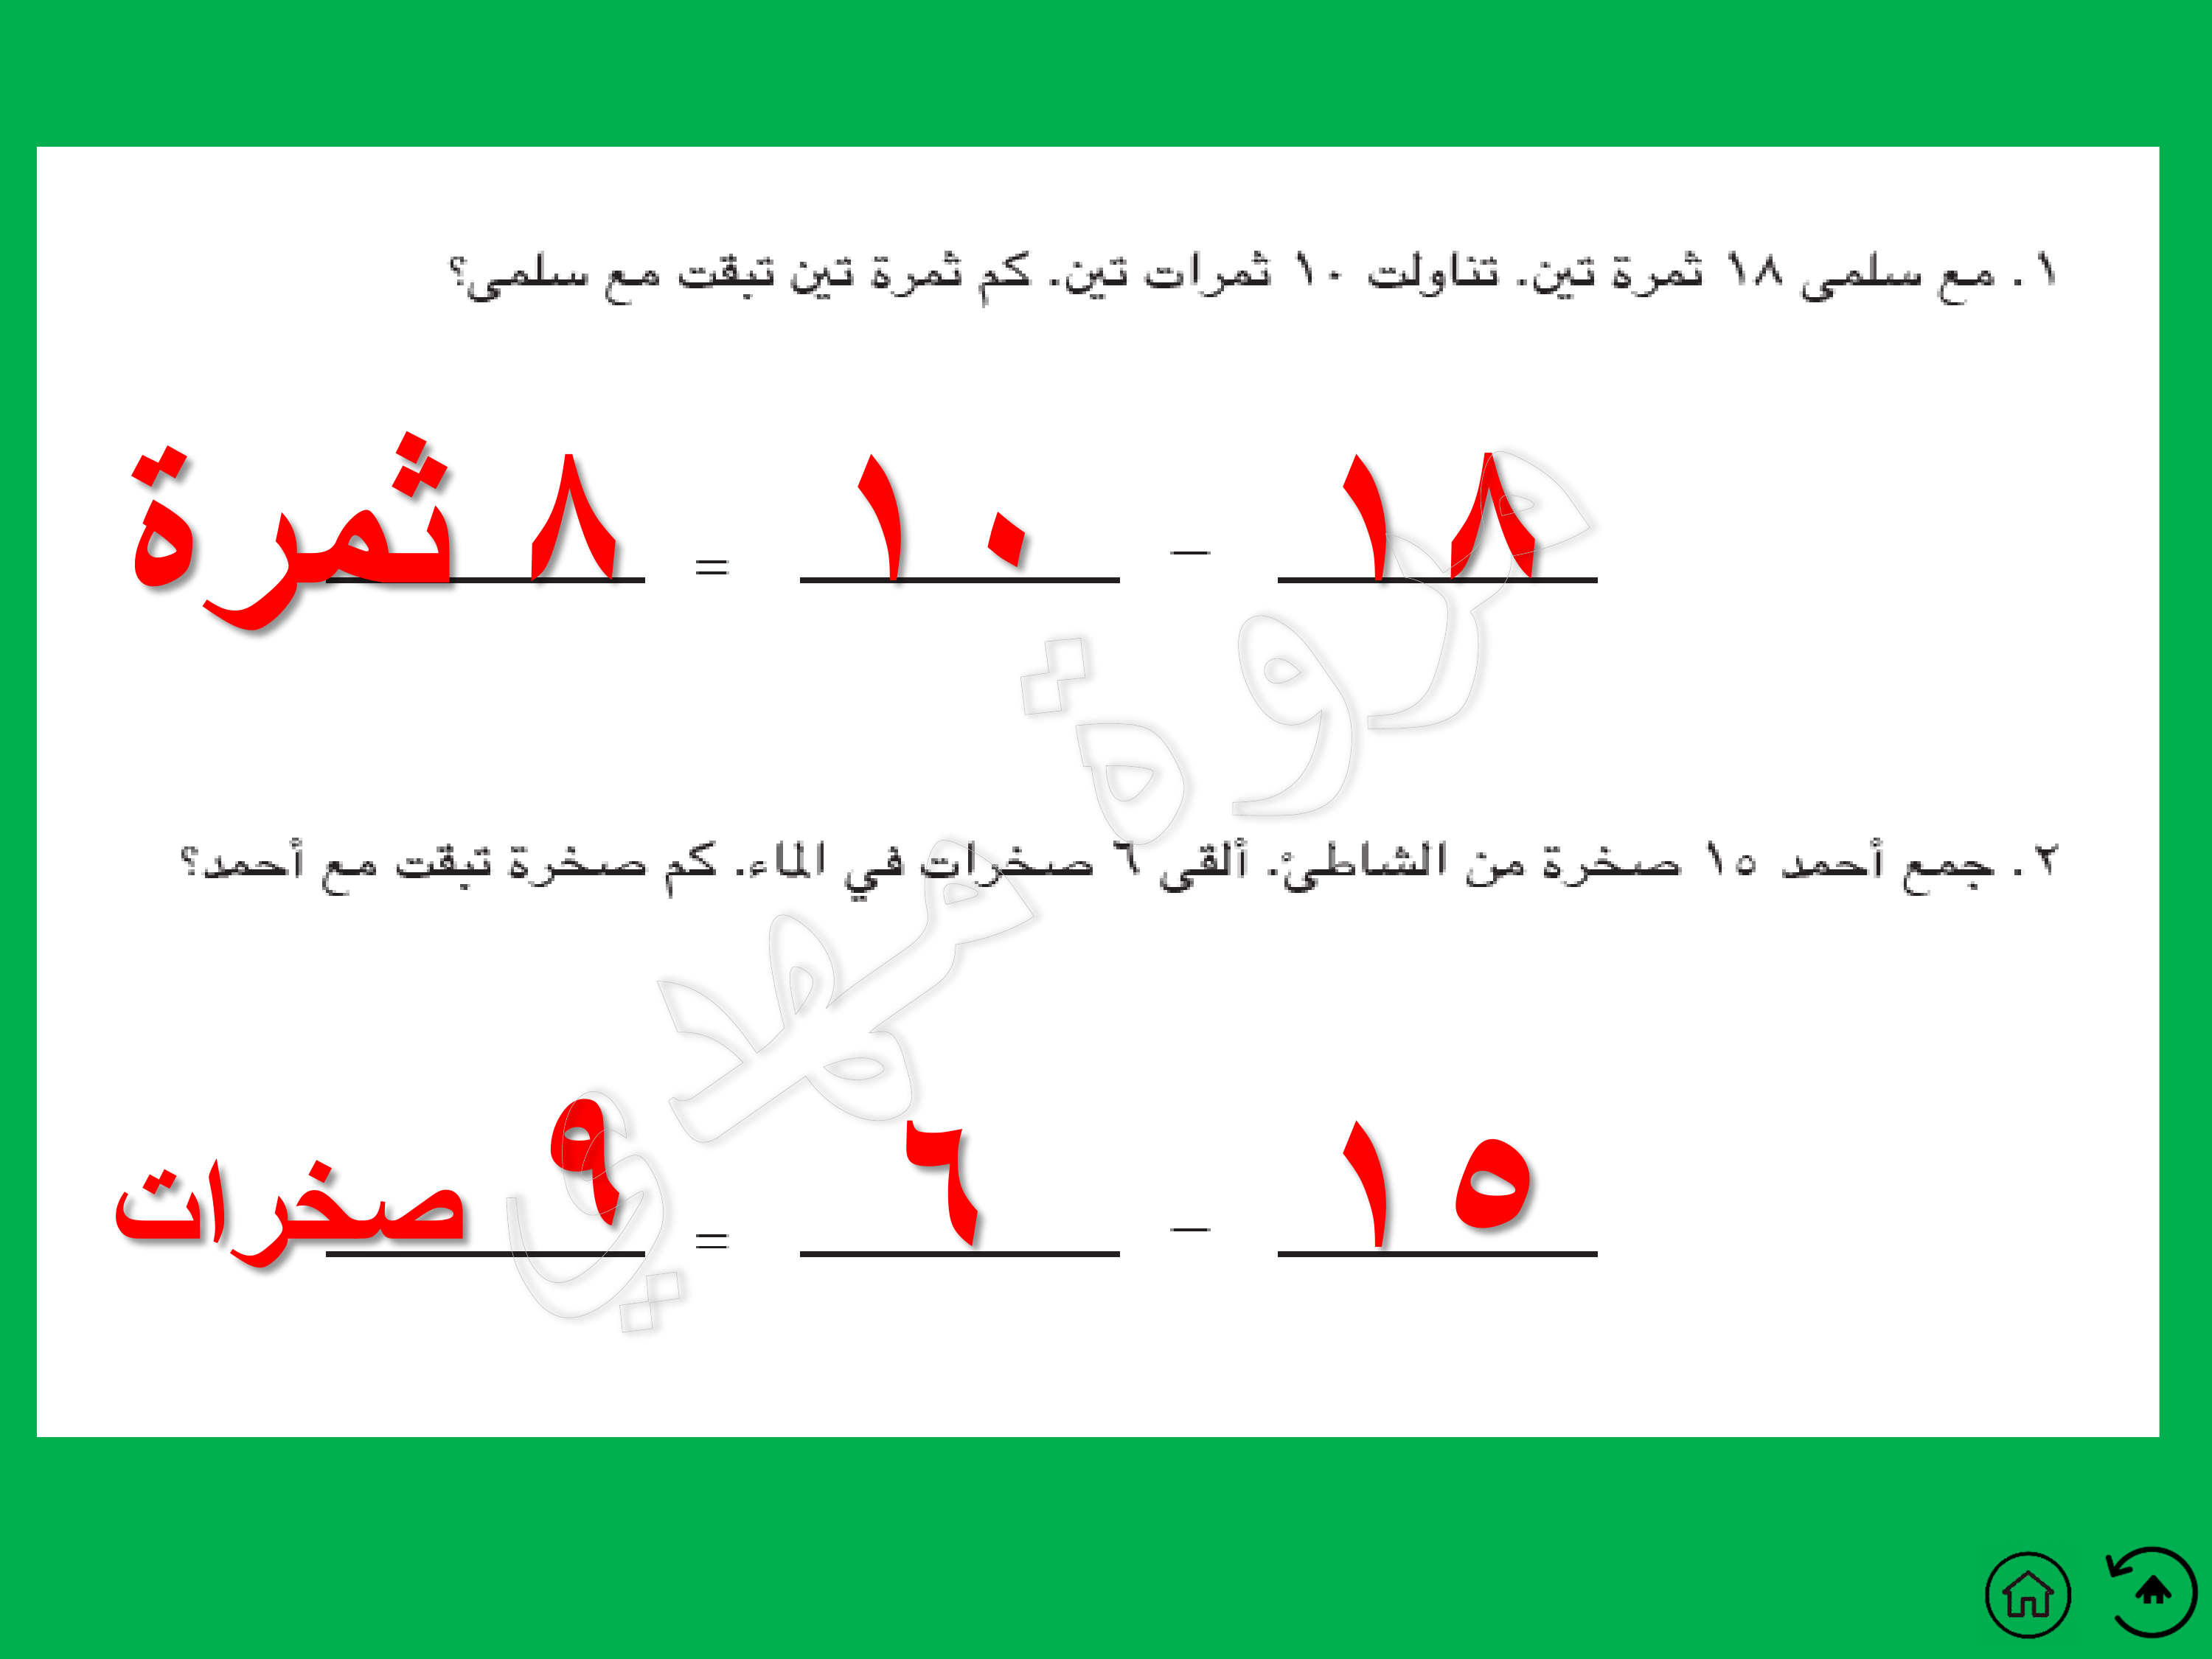 ١. مع سلمى ١٨ ثمرة تين. تناولت ١٠ ثمرات تين. كم ثمرة تين تبقت مع سلمى؟
١٨ − ١٠ = ٨ ثمرة
٢. جمع أحمد ١٥ صخرة من الشاطئ. ألقى ٦ صخرات في الماء. كم صخرة تبقت مع أحمد؟
١٥ − ٦ = ٩ صخرات
مروة مهدي